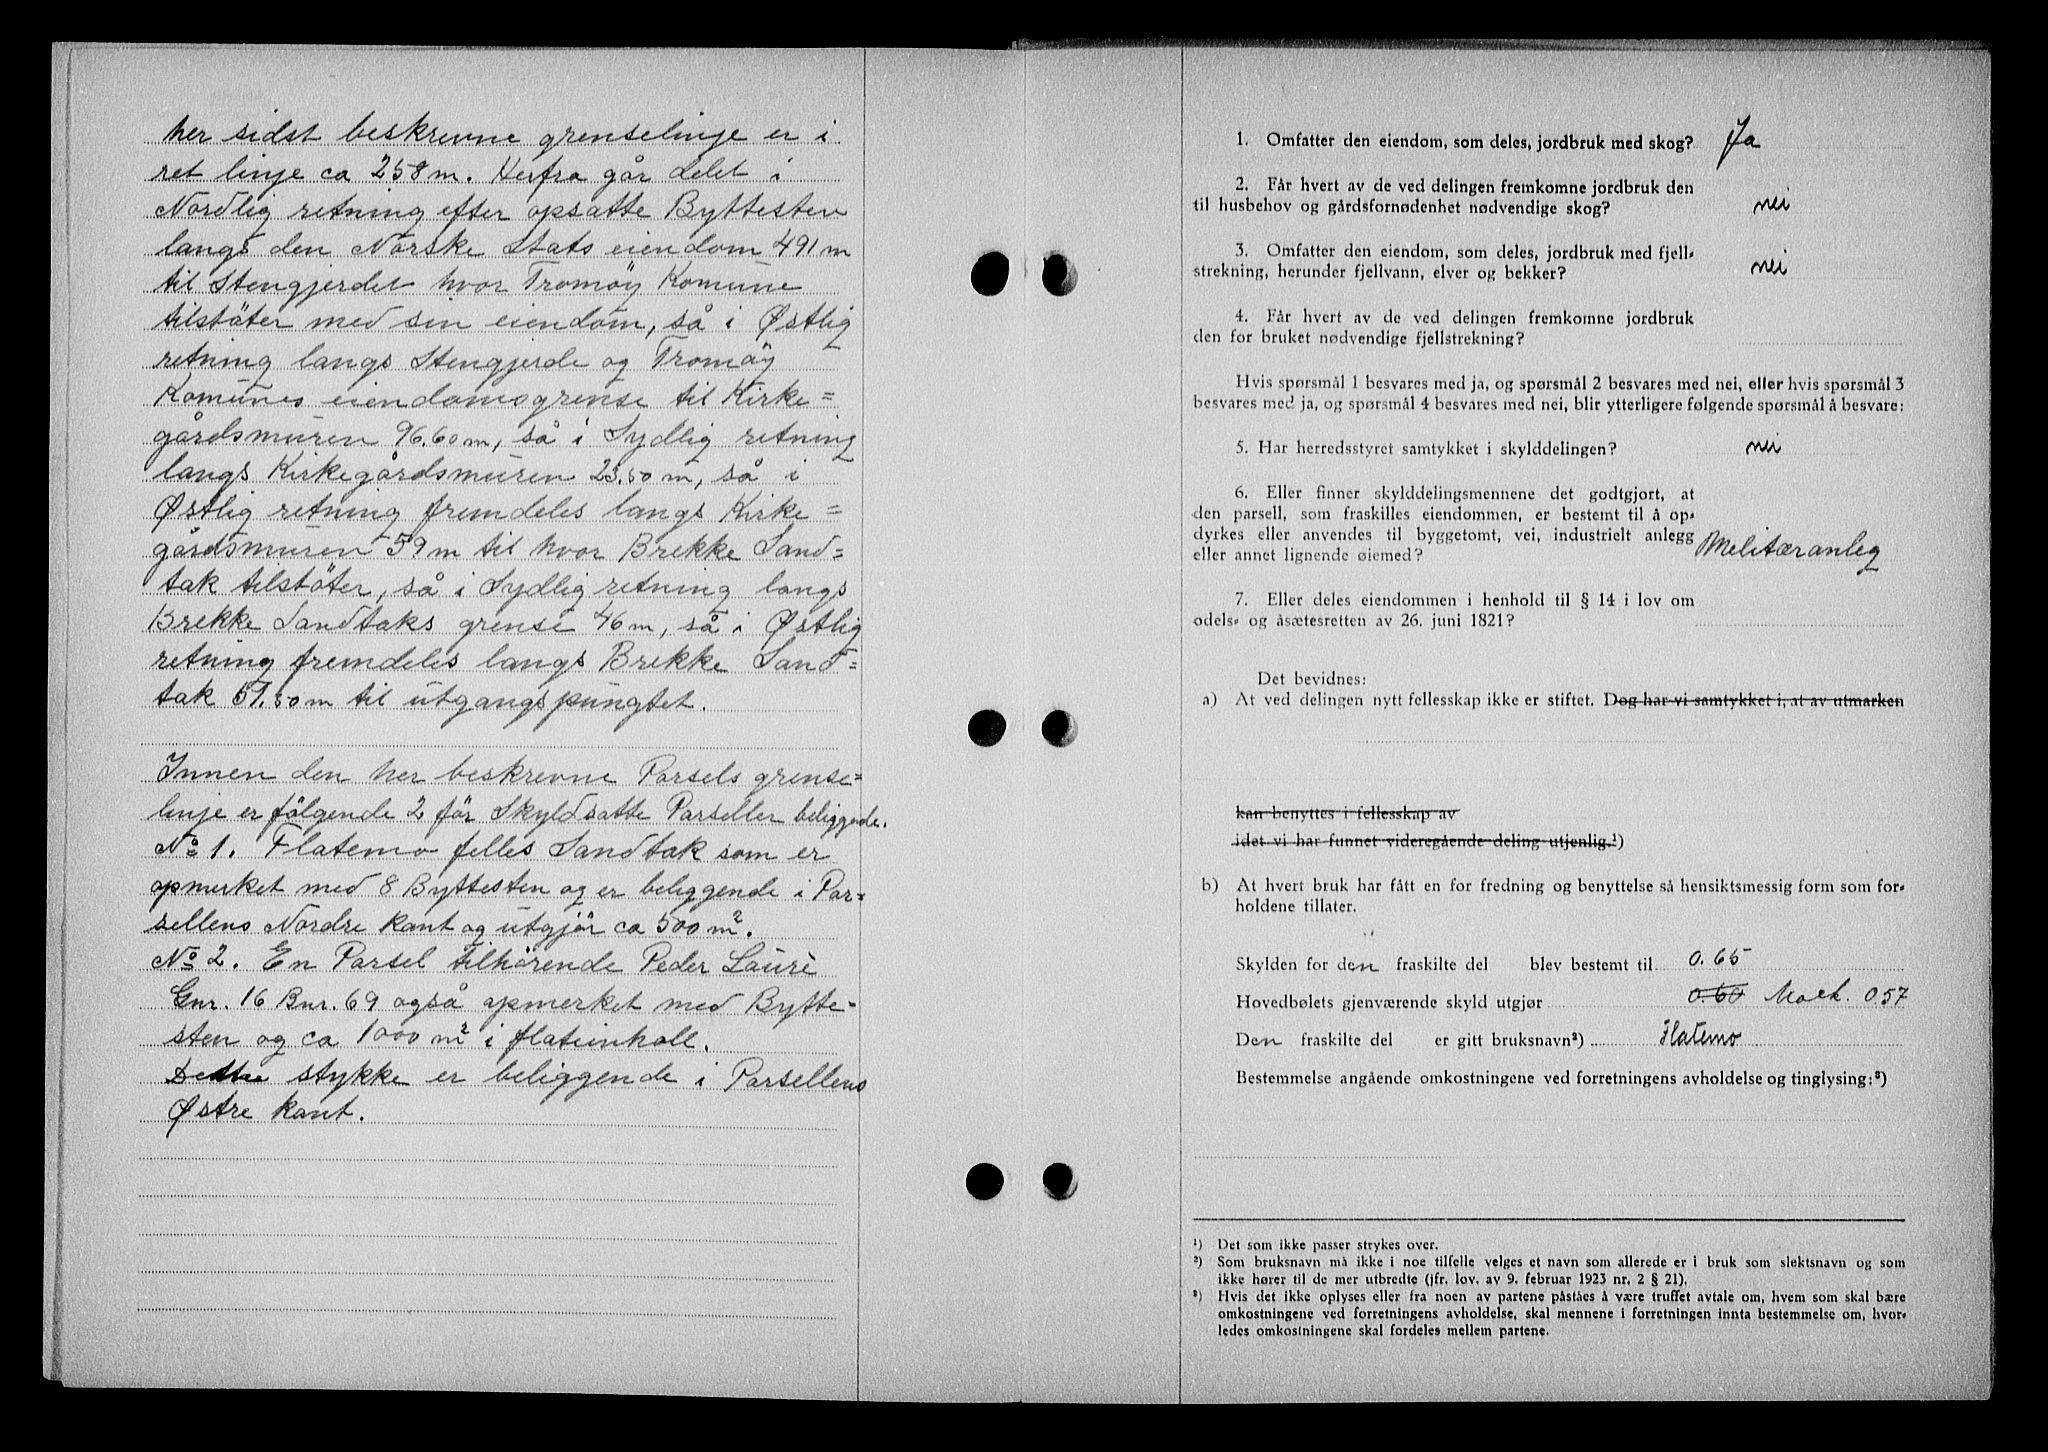 her sidst beskrevne grenselinje er i
ret linje ca 258 m. Herfra går delet i
Nordlig retning efter opsatte Byttesten
langs den Norske Stats eiendom 491 m
til Stengjerdet hvor Tromöy Komune
tilstöter med sin eiendom, så i Østlig
retning langs Stengjerde og Tromöy
Komunes eiendomsgrense til Kirke=
gårdsmuren 96.60 m, så i Sydlig retning
langs Kirkegårdsmuren 23.50 m, så i
Østlig retning fremdeles langs Kirke=
gårdsmuren 59 m til hvor Brekke Sand=
tak tilstöter, så i Sydlig retning langs
Brekke Sandtaks grense 46 m, så i Østlig
retning fremdeles langs Brekke Sand=
tak 57.50 m til utgangspungtet.
Innen den her beskrevne Parsels grense=
linje er fölgende 2 för Skyldsatte Parseller beliggende.
No 1. Flatemo felles Sandtak som er
opmerket med 8 Byttesten og er beliggende i Par=
sellens Nordre kant og utgjör ca 500 m².
No 2. En Parsel tilhörende Peder Laure
Gnr. 16 Bnr. 69 også opmerket med Bytte=
sten og ca 1000 m² i flateinhold.
Dette stykke er beliggende i Parsellens
Østre kant.
1. Omfatter den eiendom, som deles, jordbruk med skog? Ja
2. Får hvert av de ved delingen fremkomne jordbruk den
til husbehov og gårdsfornødenhet nødvendige skog? nei
3. Omfatter den eiendom, som deles, jordbruk med fjell=
strekning, herunder fjellvann, elver og bekker? nei
4. Får hvert av de ved delingen fremkomne jordbruk
den for bruket nødvendige fjellstrekning?
Hvis spørsmål 1 besvares med ja, og spørsmål 2 besvares med nei, eller hvis spørsmål 3
besvares med ja, og spørsmål 4 besvares med nei, blir ytterligere følgende spørsmål å besvare:
5. Har herredsstyret samtykket i skylddelingen? nei
6. Eller finner skylddelingsmennene det godtgjort, at
den parsell, som fraskilles eiendommen, er bestemt til å op=
dyrkes eller anvendes til byggetomt, vei, industrielt anlegg
eller annet lignende øiemed? Melitæranleg
7. Eller deles eiendommen i henhold til § 14 i lov om
odels= og åsætesretten av 26. juni 1821?
Det bevidnes:
a) At ved delingen nytt fellesskap ikke er stiftet. Dog har vi samtykket i, at av utmarken
kan benyttes i fellesskap av
idet vi har funnet videregående deling utjenlig.¹)
b) At hvert bruk har fått en for fredning og benyttelse så hensiktsmessig form som for=
holdene tillater.
Skylden for den fraskilte del blev bestemt til 0.65
Hovedbølets gjenværende skyld utgjør 0.60 Mark. 0.57
Den fraskilte del er gitt bruksnavn²) Flatemo
Bestemmelse angående omkostningene ved forretningens avholdelse og tinglysing:³)
¹) Det som ikke passer strykes over.
²) Som bruksnavn må ikke i noe tilfelle velges et navn som allerede er i bruk som slektsnavn og som
ikke hører til de mer utbredte (jfr. lov. av 9. februar 1923 nr. 2 § 21).
³) Hvis det ikke oplyses eller fra noen av partene påståes å være truffet avtale om, hvem som skal bære
omkostningene ved forretningens avholdelse, skal mennene i forretningen innta bestemmelse om, hvor=
ledes omkostningene skal fordeles mellem partene.